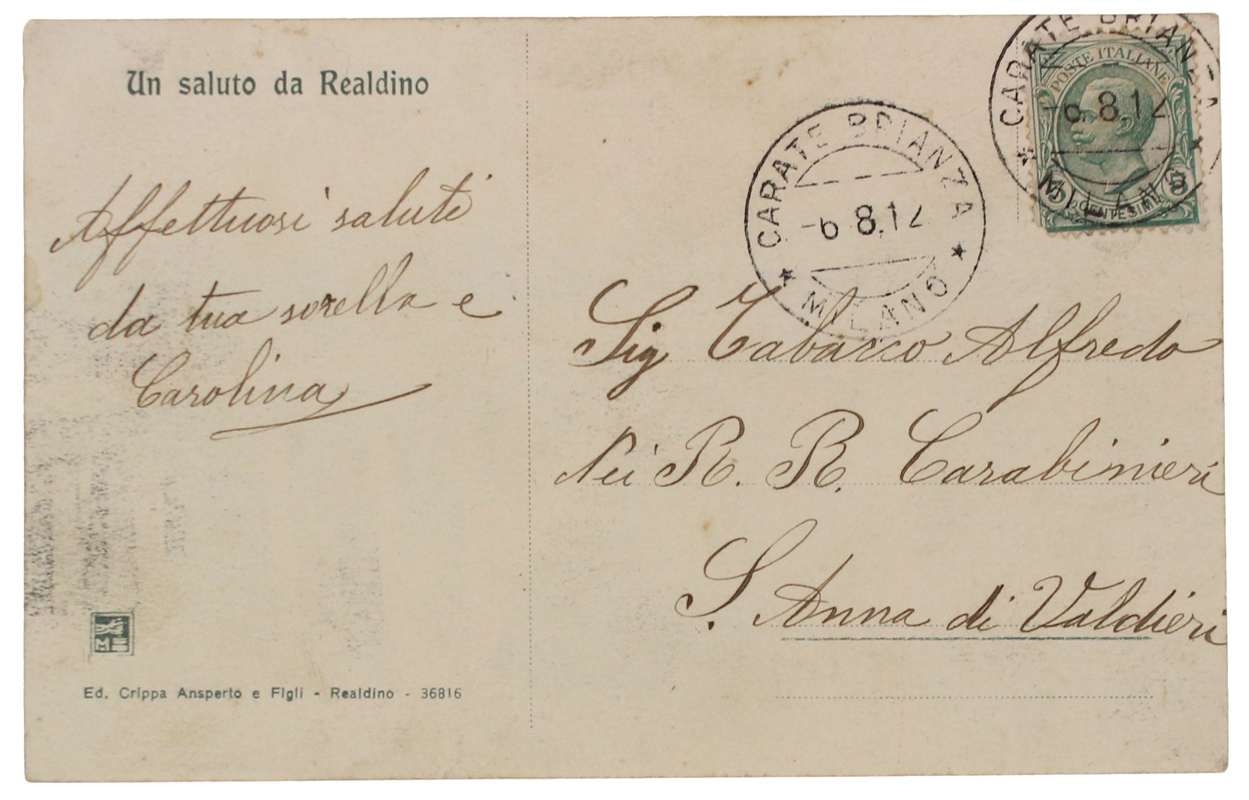 Un saluto da Realdino
Affettuosi saluti
da tua sorella e
Carolina
Ed. Crippa Ansperto e Figli - Realdino - 36816
CARATE BRIANZA
-6.8.12
* MILANO *
CARATE BRIANZA
-6.8.12
* MILANO *
POSTE ITALIANE
5 CENTESIMI 5
Sig Tabacco Alfredo
Nei R. R. Carabinieri
S. Anna di Valdieri